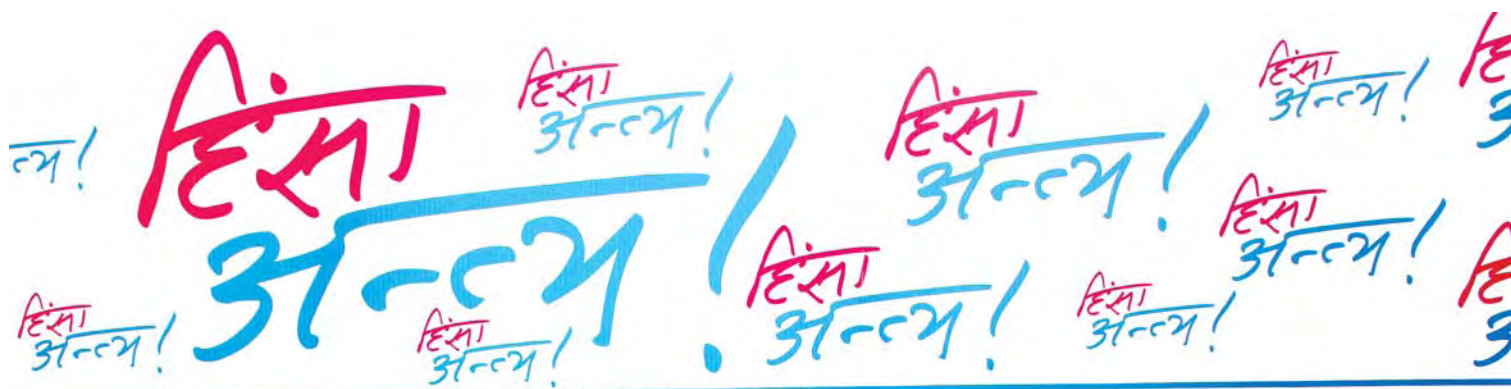 त्य!
हिंसा
अन्त्य!
हिंसा
अन्त्य!
हिंसा
अन्त्य!
हिंसा
अन्त्य!
हिंसा
अन्त्य!
हिंसा
अन्त्य!
हिंसा
अन्त्य!
हिंसा
अन्त्य!
हिंसा
अन्त्य!